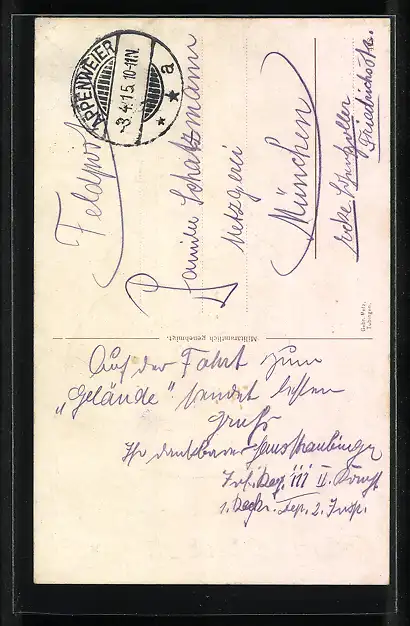 APPENWEIER
-3.4.15.10-11N.
* a *
Feldpost
Familie Schatzmann
Metzgerei
München
Ecke Schwanthaler
Friedrichstr.
Gebr. Metz,
Tübingen.
Militäramtlich genehmigt.
Auf der Fahrt zum
„Gelände" sendet besten
Gruß
Ihr dankbarer
III II.
1. 2. Insp.